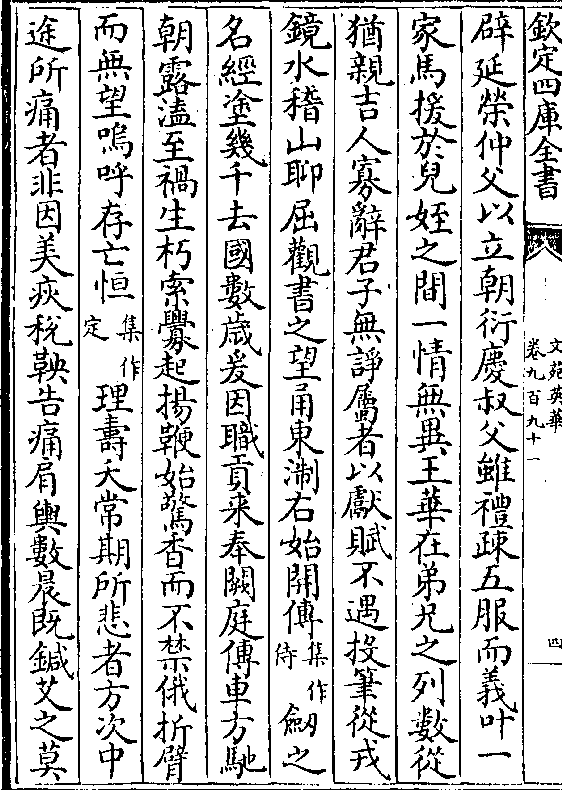 欽定四庫全書
文苑英華
卷九百九十一
四
辟延榮仲父以立朝衍慶叔父雖禮疎五服而義叶一
家馬援於兒姪之間一情無異王華在弟兄之列數從
猶親吉人寡辭君子無諍屬者以獻賦不遇投筆從戎
鏡水稽山聊屈觀書之望甬東淛右始開傳集作侍劒之
名經塗幾千去國數歲爰因職貢來奉闕庭傳車方馳
朝露溘至禍生朽索釁起揚鞭始驚香而不禁俄折臂
而無望嗚呼存亡恒集作定理壽夭常期所悲者方次中
途所痛者非因美疢稅鞅告痛肩輿數晨既鍼艾之莫